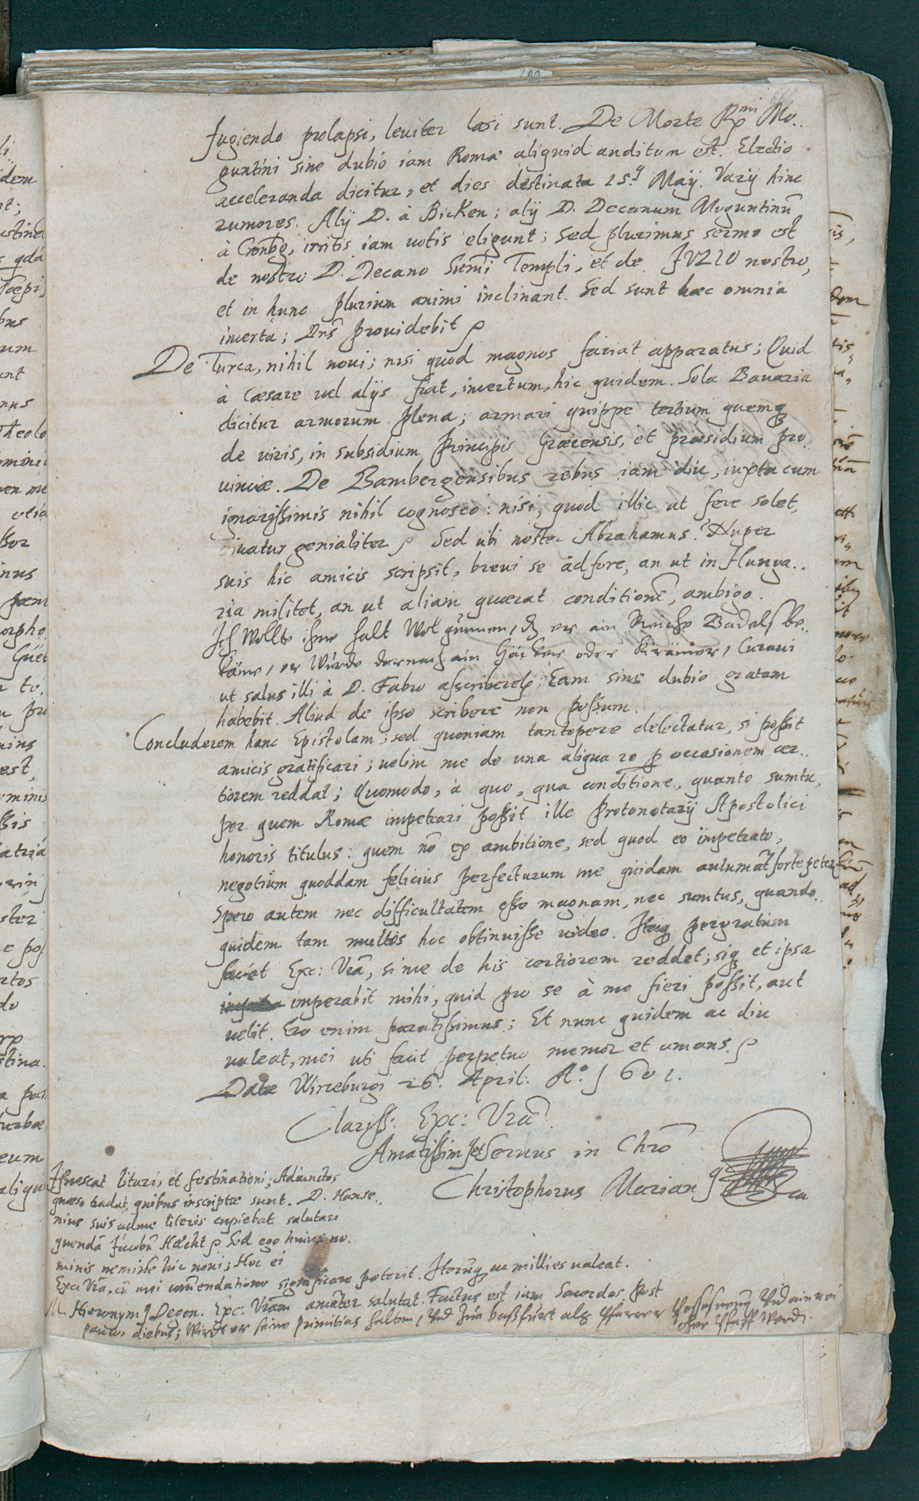 fugiendo prolapsi, leuiter læsi sunt. De Morte Rmi Mo-
guntini sine dubio iam Romæ aliquid auditum est. Electio
acceleranda dicitur, et dies destinata 15. Maij. Varij hinc
rumores. Alij D. à Bicken; alij D. Decanum Moguntinū
à Cronbg, irritis iam uotis eligunt; Sed plurimus sermo est
de nostro D. Decano Sum̄i Templi, et de IVLIO nostro,
et in hunc plurium animi inclinant. Sed sunt hæc omnia
incerta; Dns̄ prouidebit
De Turca, nihil noui; nisi quod magnos faciat apparatus; Quid
à Cæsare uel alijs fiat, incertum, hic quidem. Sola Bauaria
dicitur armorum plena; armari quippe tertium quemq
de uiris, in subsidium Principis Græcensis, et præsidium pro-
uinciæ. De Bambergensibus rebus iam diu, iuxta cum
ignarissimis nihil cognosco: nisi, quod illic ut fere solet,
uiuatur genialiter Sed ubi noster Abrahamus? Nuper
suis hic amicis scripsit, breui se adfore, an ut in Hunga-
ria militet, an ut aliam quærat conditionē, ambigo.
Ich Wollte ihme halt Wol günnen, er ain
käme, er Würde darnach ain oder Krämer, Curaui
ut salus illi à D. Fabro ascriberet; Eam sine dubio gratam
habebit. Aliud de ipso scribere non possum.
Concluderem hanc Epistolam; sed quoniam tantopere delectatur, si possit
amicis gratificari; uelim me de una aliqua re p occasionem cer-
tiorem reddat; Quomodo, à quo, qua conditione, quanto sumtu,
per quem Romæ impetrari possit ille Protonotarij Apostolici
honoris titulus: quem nō ex ambitione, sed quod eo impetrato,
negotium quoddam felicius perfecturum me quidam autumāt, forte peterē.
Spero autem nec difficultatem esse magnam, nec sumtus, quando-
quidem tam multos hoc obtinuisse uideo. Itaq pergratum
faciet Exc: Vrā, si me de his certiorem reddet; sicq et ipsa
imperabit mihi, quid pro se à me fieri possit, aut
uelit. Ero enim paratissimus; Et nunc quidem ac diu
ualeat, mei uti facit perpetuo memor et amans.
Datæ Wirceburgi 26. April. A.o 1601.
Clariss. Exc: Vræ
Amātissim et Seruus in Chrō
Christophorus Marian
Ignoscat lituris et festinationi; Adiunctas
quæso tradat, quibus inscriptæ sunt. D. Hanse-
nius suis ad me literis cupiebat salutari
quendā Jacobū Hecht Sed ego huius no-
minis neminem hic noui; Hoc ei
Exc: Vrā, cū mei com̄endatione significare poterit. Iterumq ac millies ualeat.
M. Hieronymq Degen. Exc. Vram amāter salutat. Factus est iam Sacerdos. Post
paucos diebus, Wirdt er seine primitias halten, Und Zue alß Pfarrer